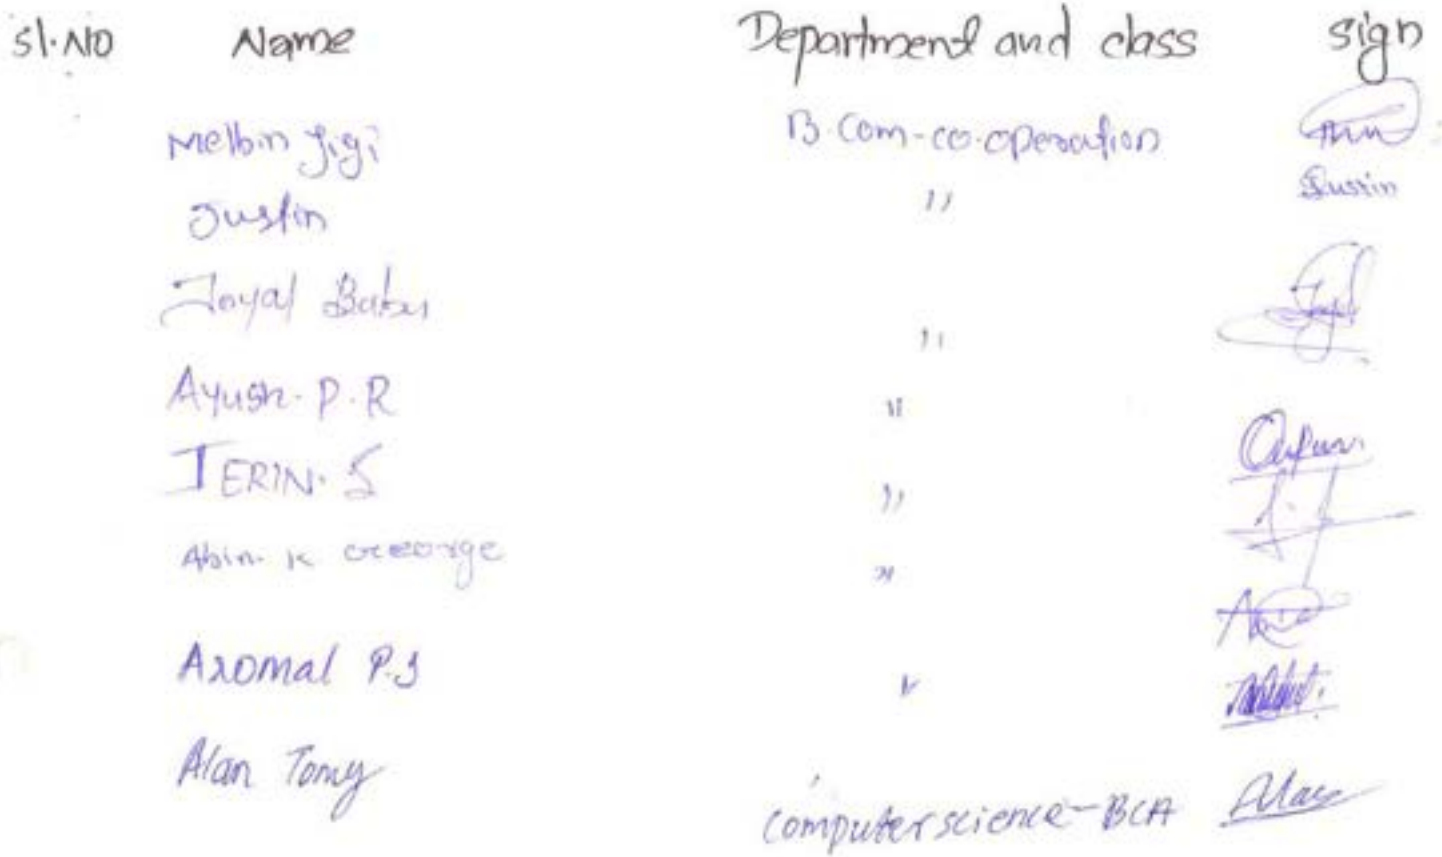 Sl.NO Name Department and class Sign
Melbin Jigi B.Com-co-operation
Justin " Justin
Joyal Babu "
Ayush. P.R "
JERIN. S "
Abin. K George "
Aromal P.J "
Alan Tomy
Computer science-BCA Alan